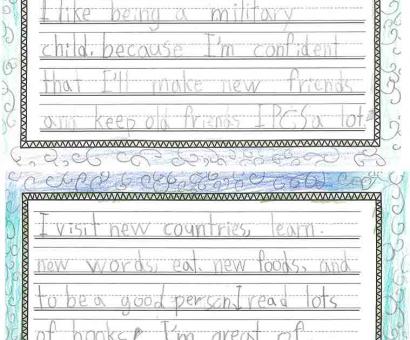 I like being a military
child. because I'm confident
that I'll make new friends
ann keep old friends I PCS a lot
I visit new countries, learn.
new words, eat. new foods, and
to be a good person.I read lots
of books. I'm great of